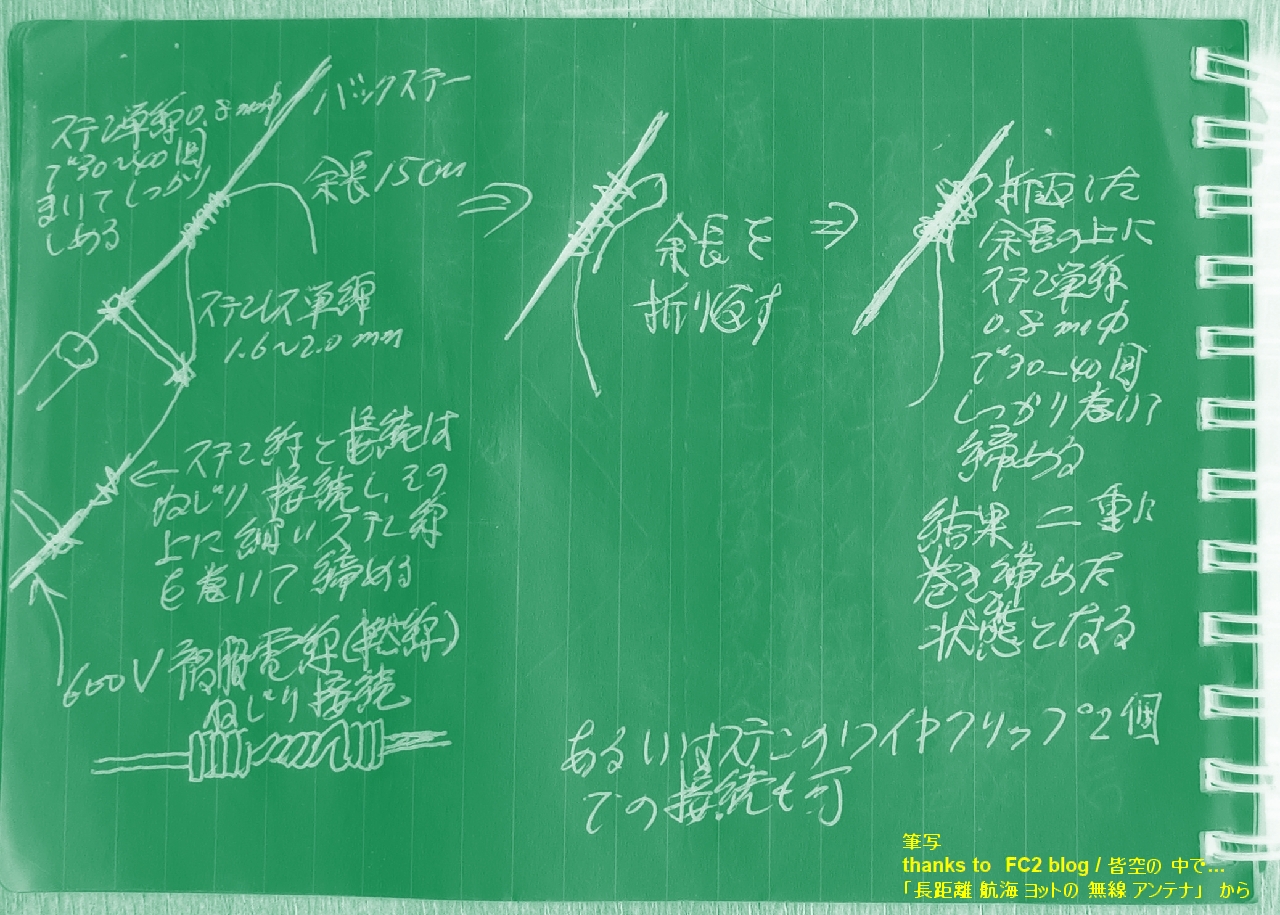 バックステー
ステン単線0.8mmφ
で30~40回
まいてしっかり
しめる
余長15cm
ステンレス単線
1.6~2.0mm
←ステン線と接続は
ねじり接続し、その
上に細いステン線
を巻いて締める
600V 被服電線(撚線)
ねじり接続
⇒
余長を
折り返す
⇒
折返した
余長の上に
ステン単線
0.8mmφ
で30~40回
しっかり巻いて
締める
結果 二重に
巻き締めた
状態となる
あるいはステンのワイヤクリップ2個
での接続も可
筆写
thanks to FC2 blog / 皆空の 中で...
「長距離 航海 ヨットの 無線 アンテナ」 から